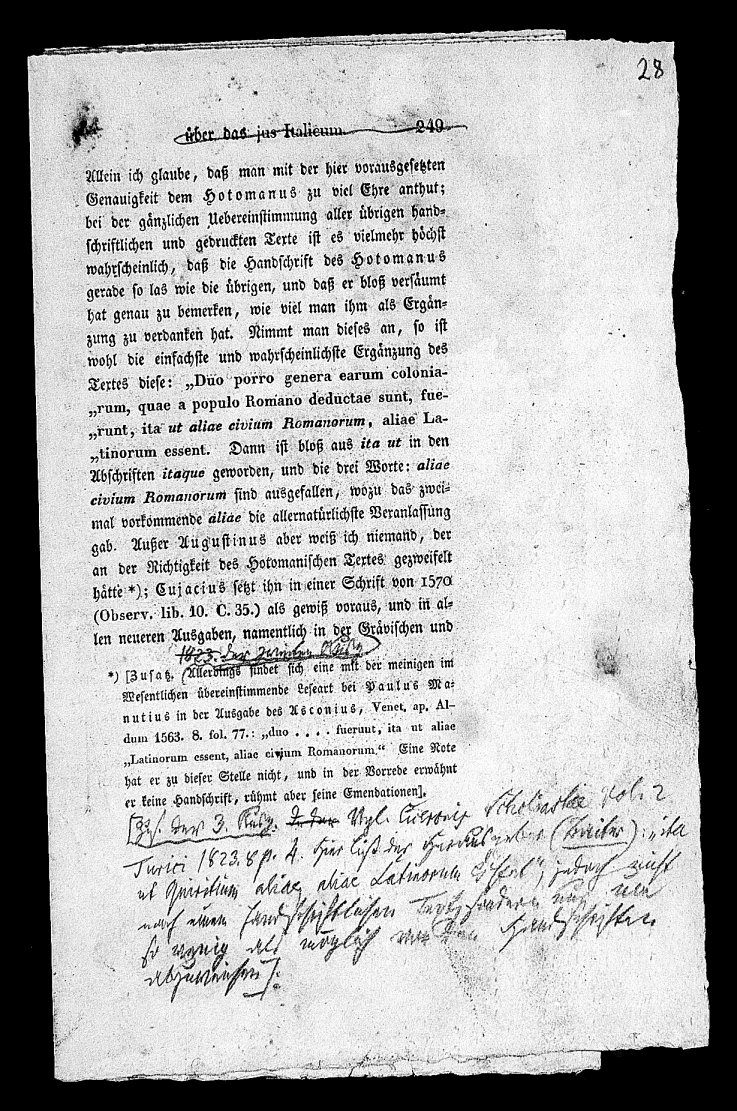 28
über das jus Italicum. 249
Allein ich glaube, daß man mit der hier vorausgesetzten
Genauigkeit dem Hotomanus zu viel Ehre anthut;
bei der gänzlichen Uebereinstimmung aller übrigen hand=
schriftlichen und gedruckten Texte ist es vielmehr höchst
wahrscheinlich, daß die Handschrift des Hotomanus
gerade so las wie die übrigen, und daß er bloß versäumt
hat genau zu bemerken, wie viel man ihm als Ergän=
zung zu verdanken hat. Nimmt man dieses an, so ist
wohl die einfachste und wahrscheinlichste Ergänzung des
Textes diese: „Duo porro genera earum colonia-
„rum, quae a populo Romano deductae sunt, fue-
„runt, ita ut aliae civium Romanorum, aliae La-
„tinorum essent. Dann ist bloß aus ita ut in den
Abschriften itaque geworden, und die drei Worte: aliae
civium Romanorum sind ausgefallen, wozu das zwei=
mal vorkommende aliae die allernatürlichste Veranlassung
gab. Außer Augustinus aber weiß ich niemand, der
an der Richtigkeit des Hotomanischen Textes gezweifelt
hätte *); Cujacius setzt ihn in einer Schrift von 1570
(Observ. lib. 10. C. 35.) als gewiß voraus, und in al=
len neueren Ausgaben, namentlich in der Grävischen und
1823. der zweiten Ausg.
*) [Zusatz. (Allerdings findet sich eine mit der meinigen im
Wesentlichen übereinstimmende Leseart bei Paulus Ma=
nutius in der Ausgabe des Asconius, Venet. ap. Al-
dum 1563. 8. fol. 77.: „duo . . . . fuerunt, ita ut aliae
„Latinorum essent, aliae civium Romanorum.“ Eine Note
hat er zu dieser Stelle nicht, und in der Vorrede erwähnt
er keine Handschrift, rühmt aber seine Emendationen].
[Zus. der 3. Ausg. Vgl. Ciceronis Scholiastae vol. 2
Turici 1823. 8 p. 4. Hier liest der Herausgeber (Baiter): „ita
ut Quiritium aliae, aliae Latinorum essent“, jedoch nicht
nach einem handschriftlichen Text, sondern nur um
so wenig als möglich von den Handschriften
abzuweichen].